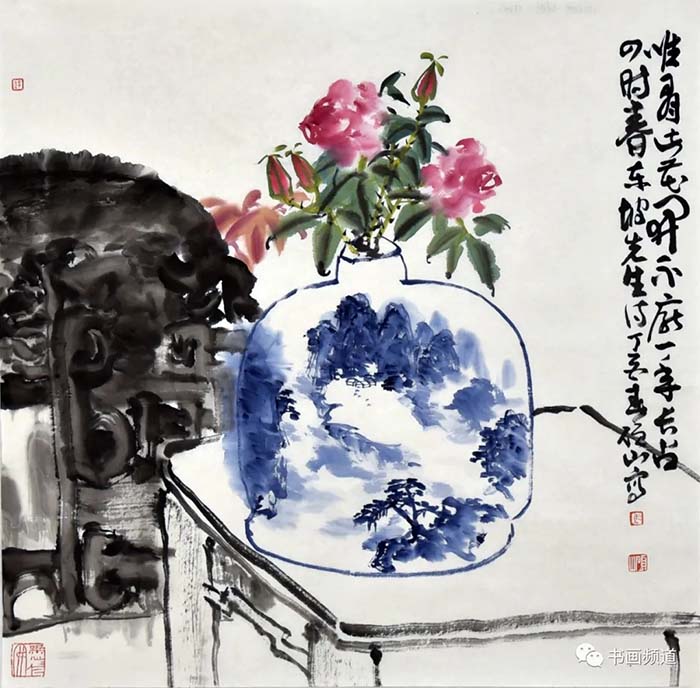 唯有此花開不厭一年长占
四时春东坡先生诗丁亥春山写
书画频道